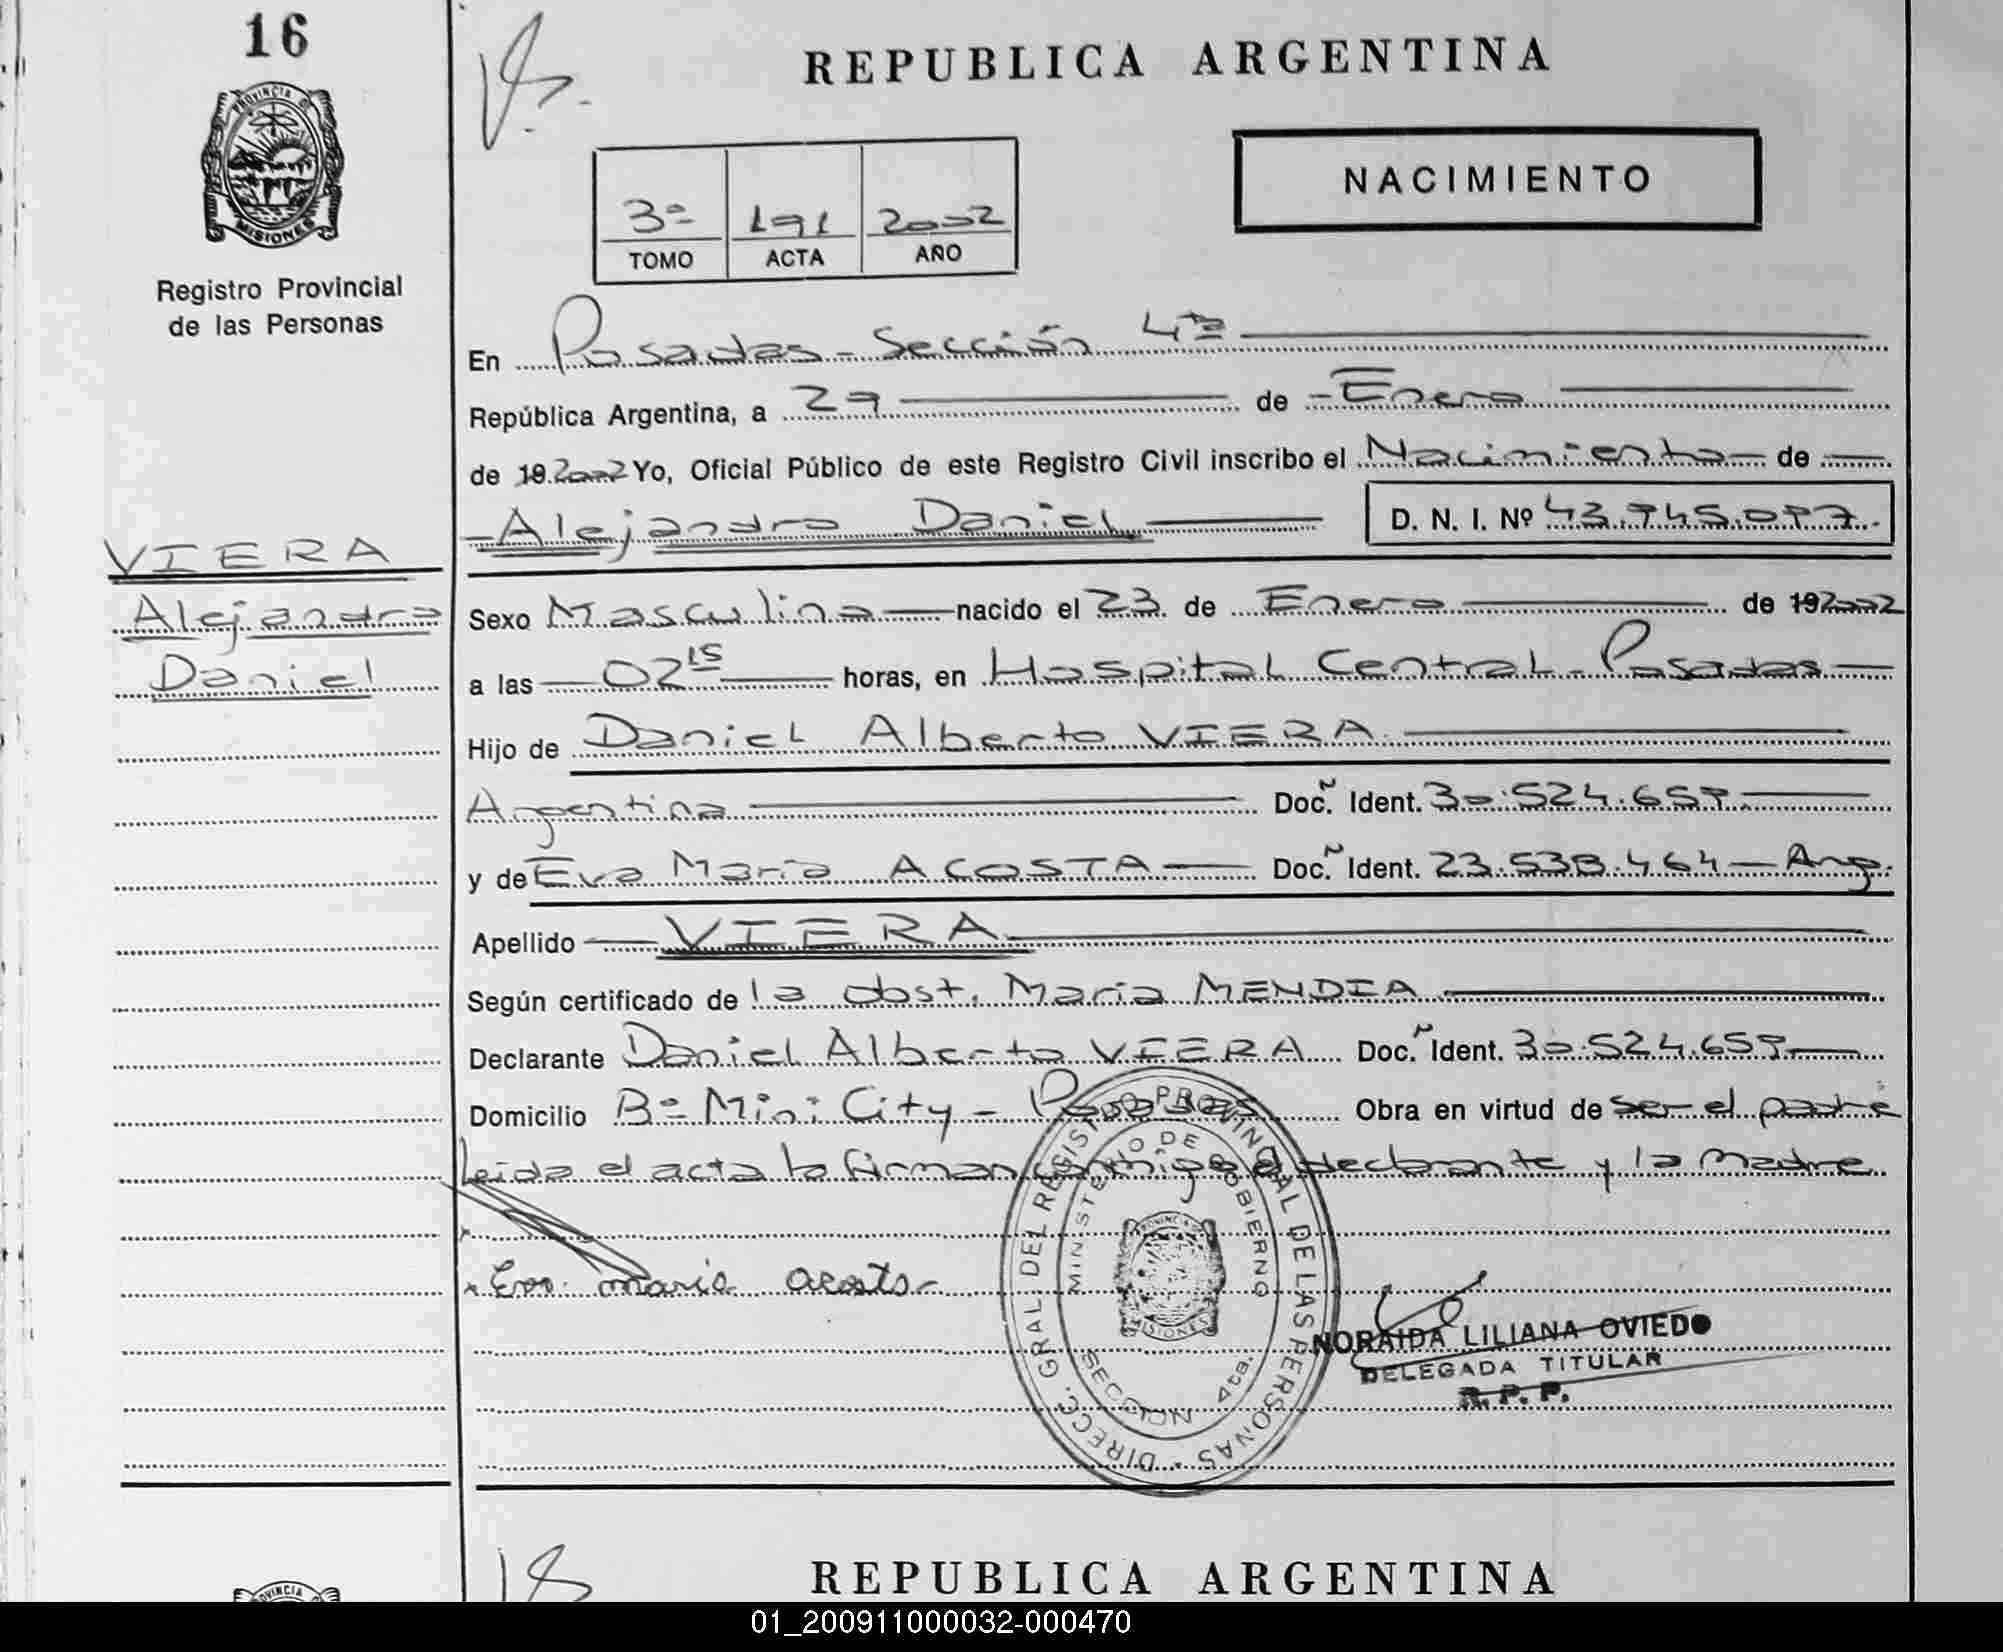 16
REPUBLICA ARGENTINA
PROVINCIA DE
MISIONES
NACIMIENTO
3º 191 2002
TOMO ACTA AÑO
Registro Provincial
de las Personas
En Posadas - Sección 4ta
República Argentina, a 29 de - Enero
de 19 2002 Yo, Oficial Público de este Registro Civil inscribo el Nacimiento de
- Alejandro Daniel D. N. I. Nº 43.945.097.
VIERA
Alejandro
Daniel
Sexo Masculino nacido el 23 de Enero de 192002
a las 02 15 horas, en Hospital Central - Posadas
Hijo de Daniel Alberto VIERA
Argentina Doc. Ident. 30.524.659
y de Eva Maria ACOSTA Doc. Ident. 23.538.464 - Arg.
Apellido VIERA
Según certificado de la obst. Maria MENDIA
Declarante Daniel Alberto VIERA Doc. Ident. 30.524.659
Domicilio Bº Mini City - Posadas Obra en virtud de ser el padre
Leida el acta la firman conmigo el declarante y la madre
Eva maria acosta
DIRECC. GRAL DEL REGISTRO PROVINCIAL DE LAS PERSONAS
MINISTERIO DE GOBIERNO
PROVINCIA DE
MISIONES
SECCION 4ta.
NORAIDA LILIANA OVIEDO
DELEGADA TITULAR
R. P. P.
REPUBLICA ARGENTINA
PROVINCIA
01_200911000032-000470